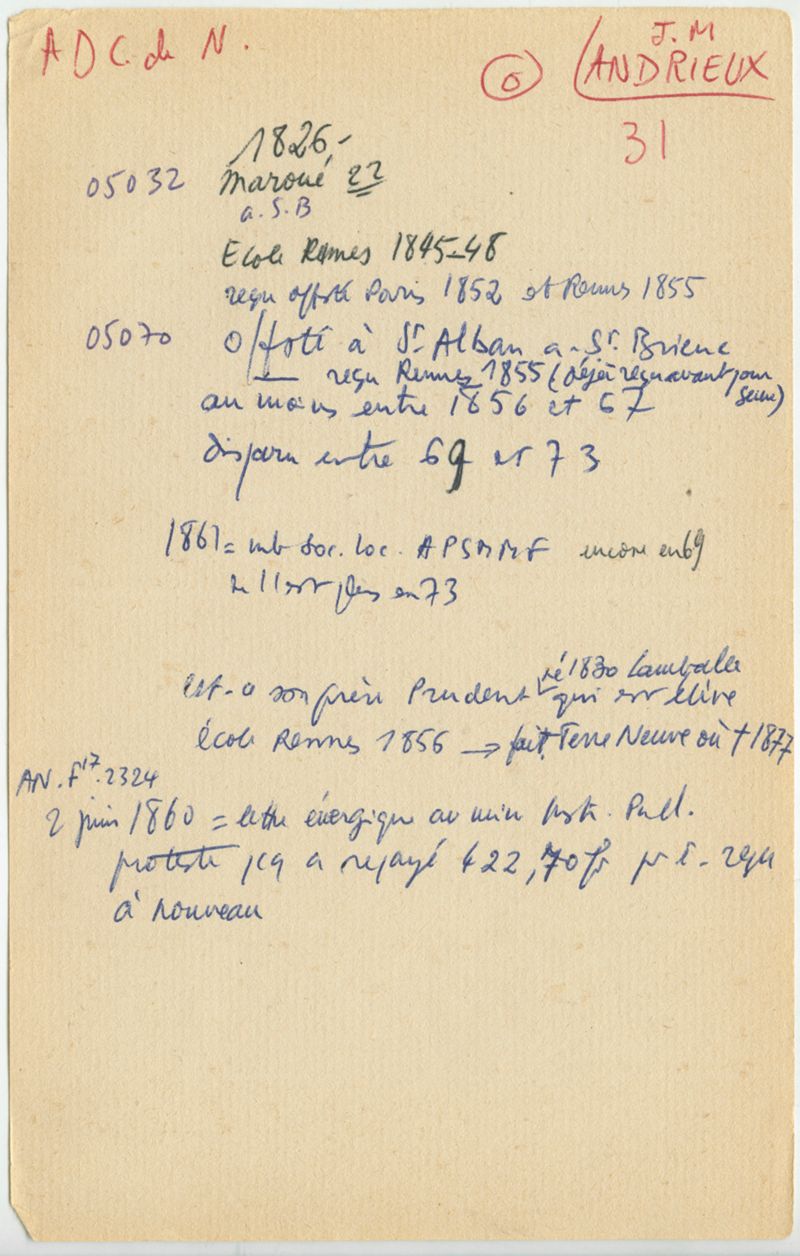 A D C. du N.
J. M
O ANDRIEUX
31
1826,-
05032 Maroué 22
a. S. B
Ecole Rennes 1845-48
reçu offté Paris 1852 et Rennes 1855
05070 Offoté à St Alban a. St. Brieuc
— reçu Rennes 1855 (déjà reçu avant pour
Seine)
au moins entre 1856 et 67
disparu entre 69 et 73
1861 = mb Soc. loc. APSMMF encore en 69
ne l'est plus en 73
né 1830 Lamballe
est-ce son frère Prudent qui est élève
école Rennes 1856 → fait Terre Neuve où † 1877
AN. F17. 2324
2 juin 1860 = lettre énergique au min Instr. Publ.
proteste pcq a repayé 422,70 fr pr ê. reçu
à nouveau